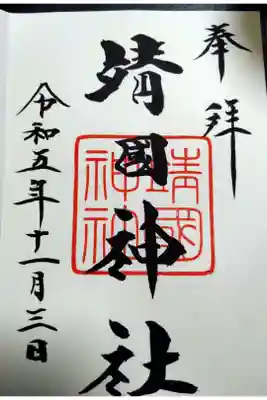 奉拝
靖國神社
靖國神社
令和五年十一月三日